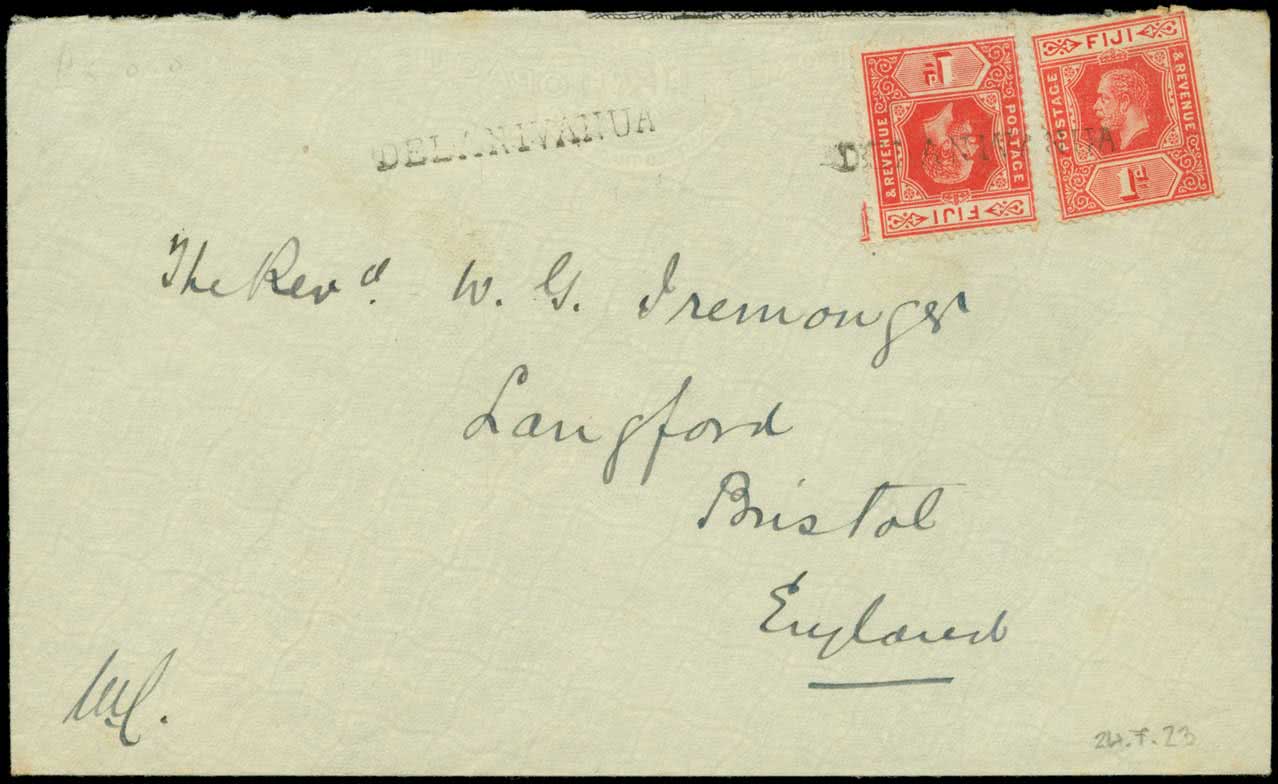 DELANIVANUA
DELANIVANUA
1d
& REVENUE POSTAGE
FIJI
FIJI
POSTAGE & REVENUE
1d
The Revd. W. G. Iremonger
Langford
Bristol
England
24.7.23